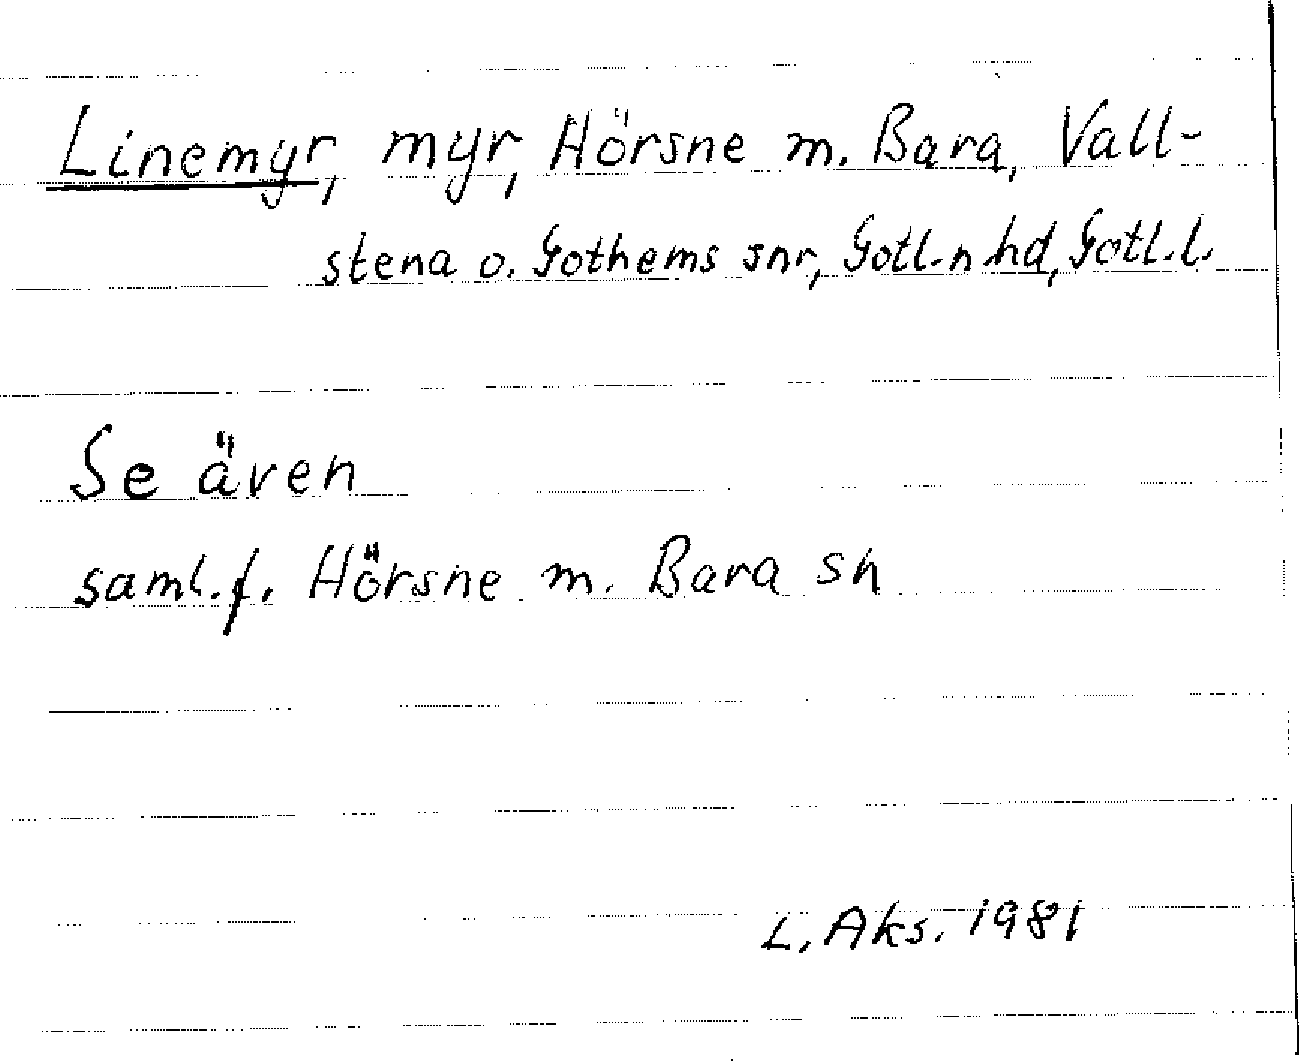 Linemyr, myr, Hörsne m. Bara, Vall-
stena o. Gothems snr, Gotl. n hd, Gotl. l.
Se även
saml. f. Hörsne m. Bara sn
L. Aks. 1981